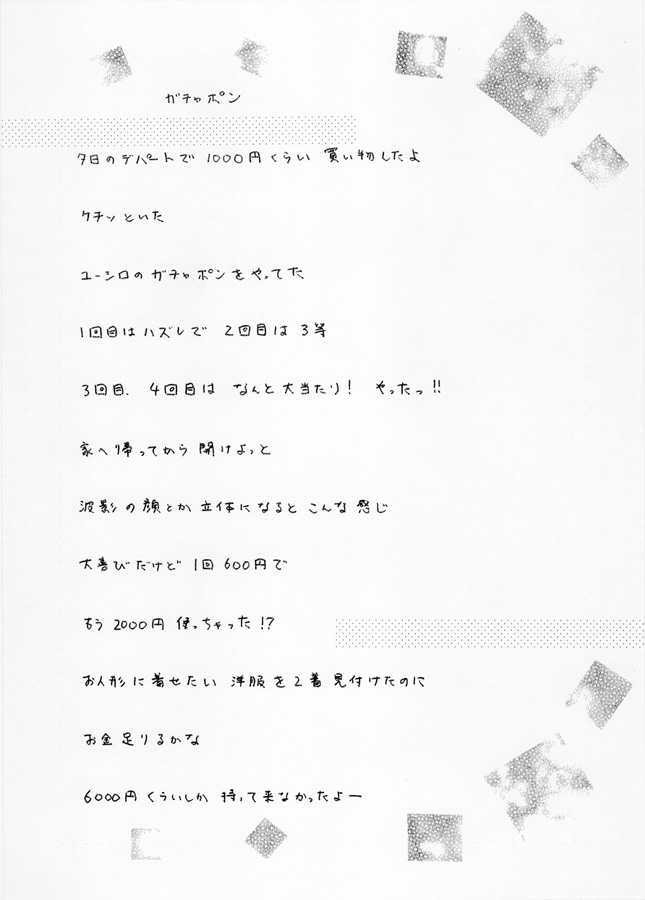 ガチャポン
夕日のデパートで 1000円くらい 買い物したよ
ケチッといた
ユーシロのガチャポンをやってた
1回目はハズレで 2回目は 3等
3回目、4回目は なんと大当たり! やったっ!!
家へ帰ってから 開けよっと
波影の顔とか 立体になると こんな感じ
大喜びだけど 1回600円で
もう 2000円 使っちゃった!?
お人形に着せたい 洋服を2着 見付けたのに
お金足りるかな
6000円くらいしか 持って来なかったよー